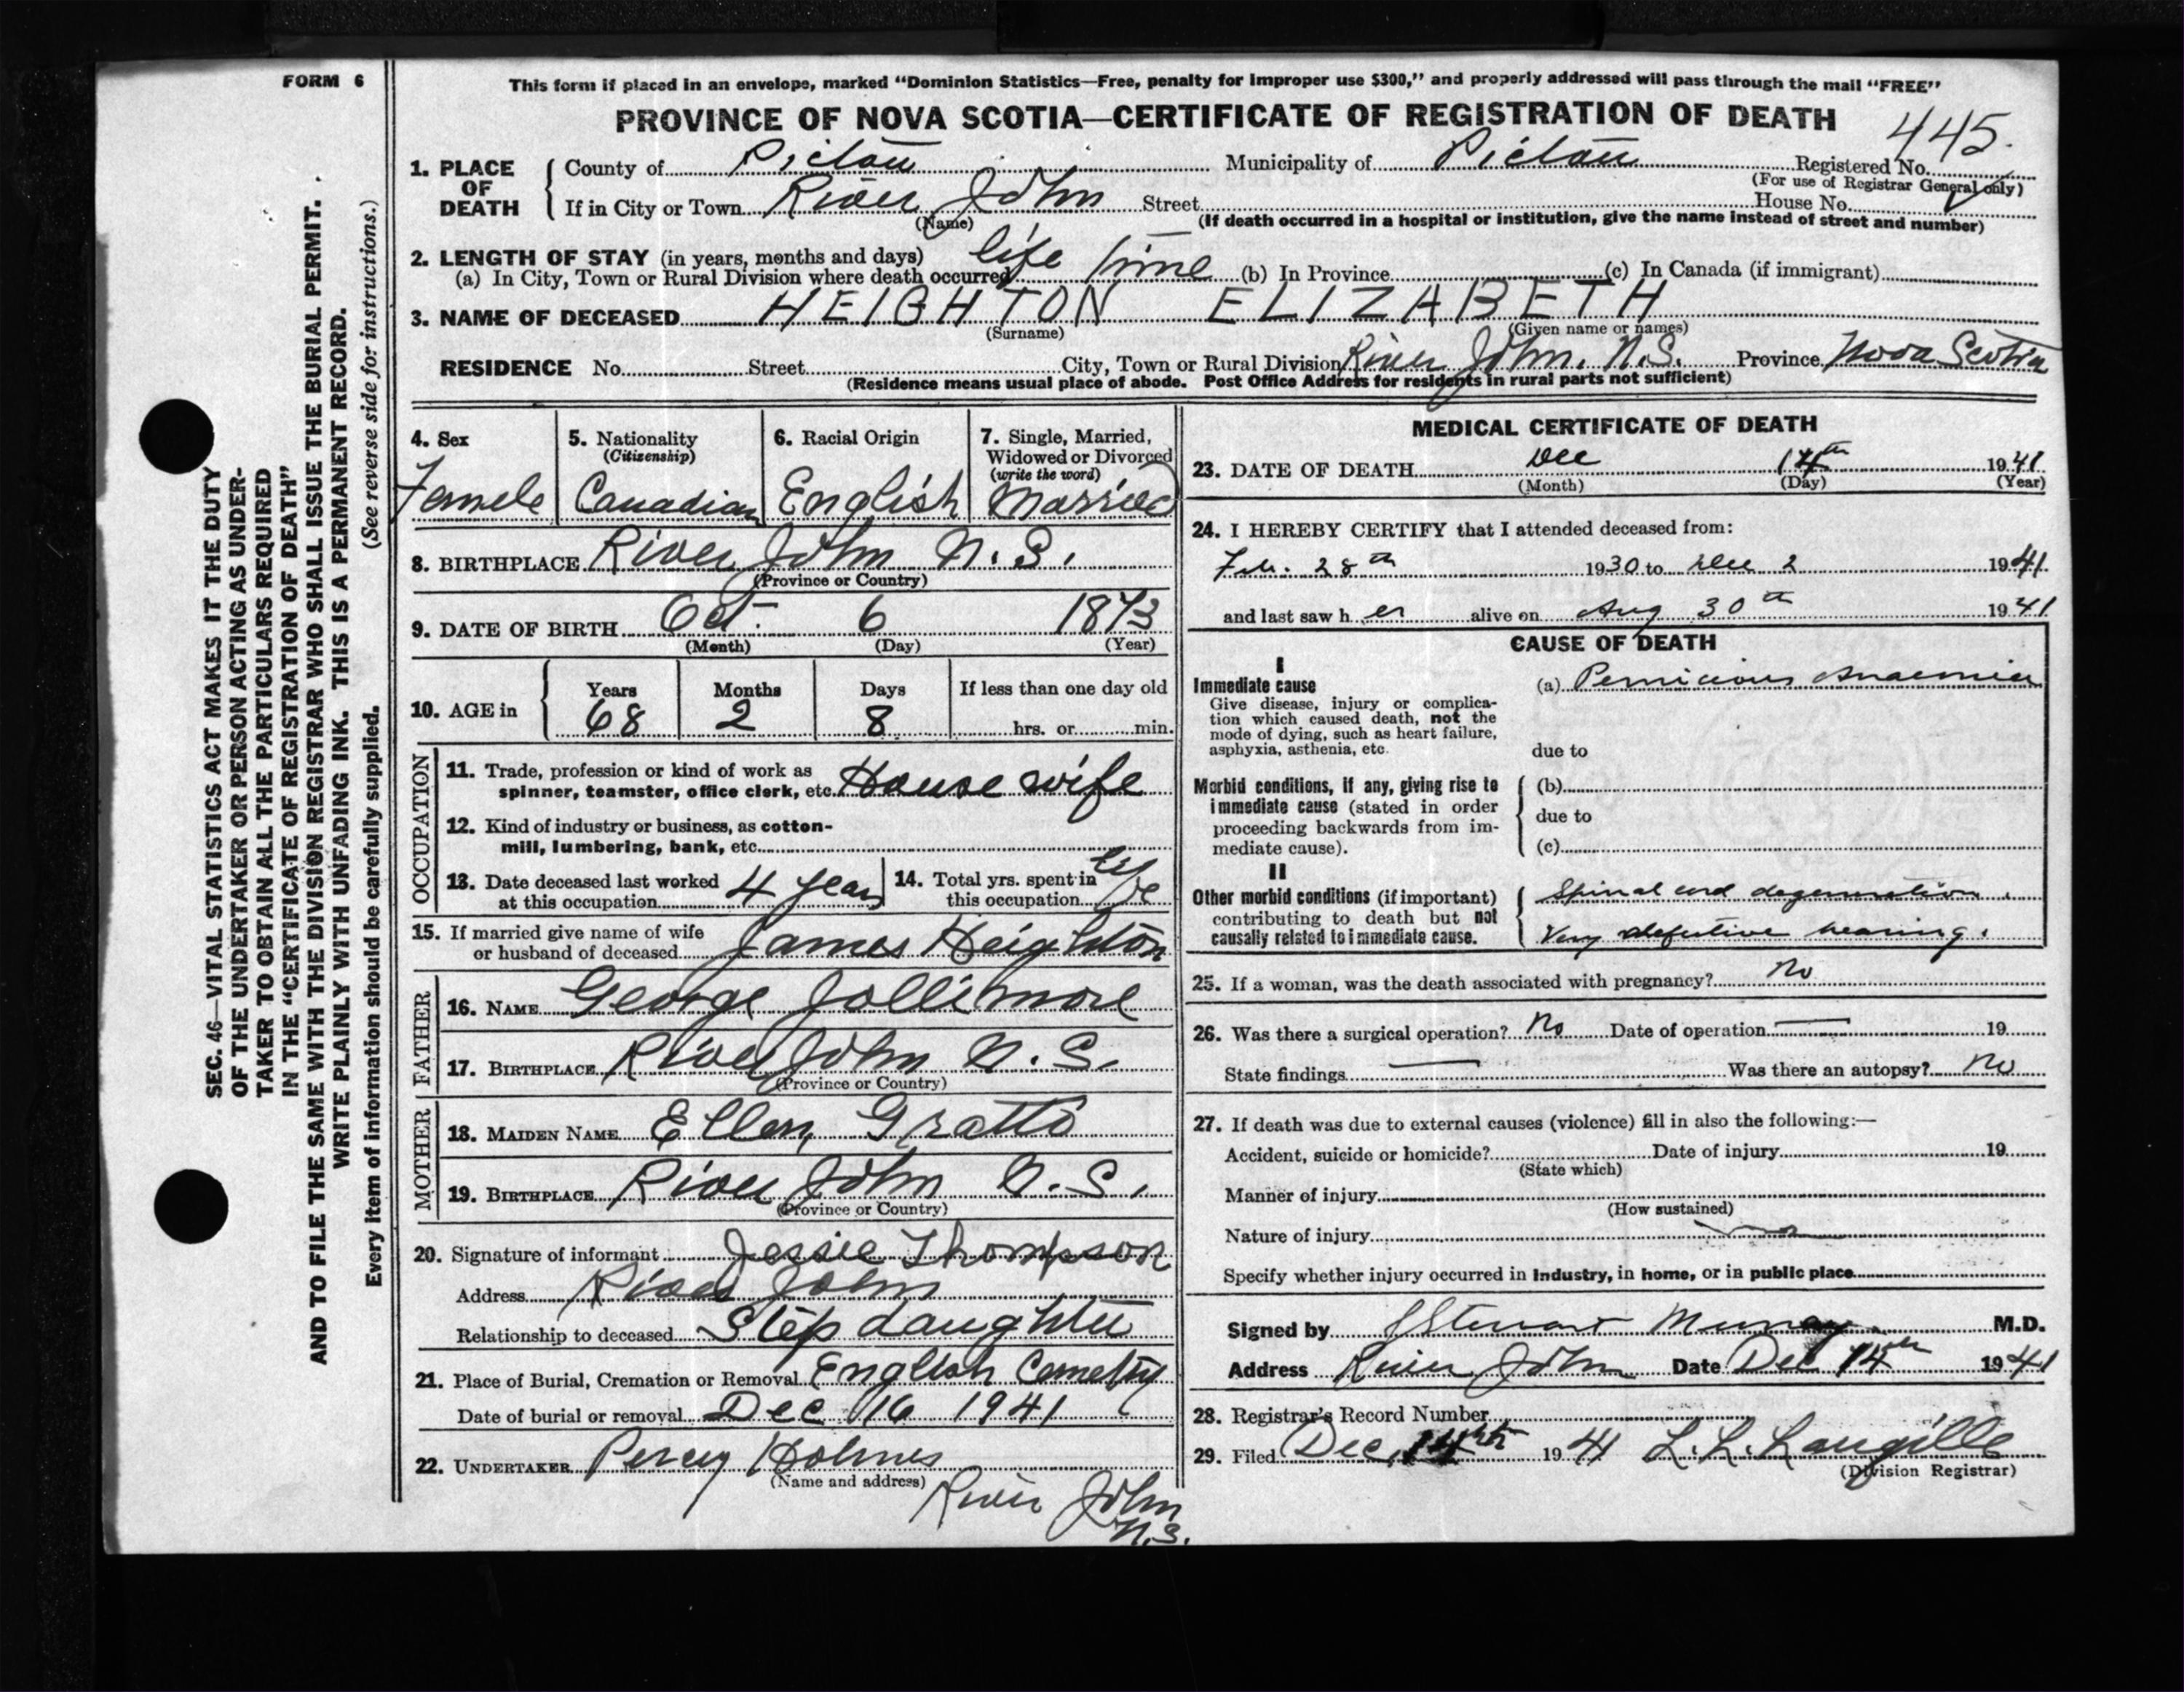 FORM 6
This form if placed in an envelope, marked “Dominion Statistics—Free, penalty for Improper use $300,” and properly addressed will pass through the mail “FREE”
PROVINCE OF NOVA SCOTIA—CERTIFICATE OF REGISTRATION OF DEATH
445.
1. PLACE OF DEATH
County of Pictou Municipality of Pictou Registered No.
(For use of Registrar General only)
If in City or Town River John Street House No.
(Name) (If death occurred in a hospital or institution, give the name instead of street and number)
2. LENGTH OF STAY (in years, months and days)
(a) In City, Town or Rural Division where death occurred life time (b) In Province (c) In Canada (if immigrant)
3. NAME OF DECEASED HEIGHTON ELIZABETH
(Surname) (Given name or names)
RESIDENCE No. Street City, Town or Rural Division River John. N.S. Province Nova Scotia
(Residence means usual place of abode. Post Office Address for residents in rural parts not sufficient)
SEC. 46—VITAL STATISTICS ACT MAKES IT THE DUTY
OF THE UNDERTAKER OR PERSON ACTING AS UNDER-
TAKER TO OBTAIN ALL THE PARTICULARS REQUIRED
IN THE “CERTIFICATE OF REGISTRATION OF DEATH”
AND TO FILE THE SAME WITH THE DIVISION REGISTRAR WHO SHALL ISSUE THE BURIAL PERMIT.
WRITE PLAINLY WITH UNFADING INK. THIS IS A PERMANENT RECORD.
Every item of information should be carefully supplied. (See reverse side for instructions.)
4. Sex
Female
5. Nationality
(Citizenship)
Canadian
6. Racial Origin
English
7. Single, Married,
Widowed or Divorced
(write the word)
Married
8. BIRTHPLACE River John N.S.
(Province or Country)
9. DATE OF BIRTH Oct. 6 1873
(Month) (Day) (Year)
10. AGE in
Years Months Days If less than one day old
68 2 8 hrs. or min.
OCCUPATION
11. Trade, profession or kind of work as
spinner, teamster, office clerk, etc. House wife
12. Kind of industry or business, as cotton-
mill, lumbering, bank, etc.
13. Date deceased last worked
at this occupation 4 years
14. Total yrs. spent in
this occupation life
15. If married give name of wife
or husband of deceased James Heighton
FATHER
16. NAME George Jollimore
17. BIRTHPLACE River John N.S.
(Province or Country)
MOTHER
18. MAIDEN NAME Ellen Gratto
19. BIRTHPLACE River John N.S.
(Province or Country)
20. Signature of informant Jessie Thompson
Address River John
Relationship to deceased Step daughter
21. Place of Burial, Cremation or Removal English Cemetry
Date of burial or removal Dec 16 1941
22. UNDERTAKER Percy Holmes
(Name and address) River John
N.S.
MEDICAL CERTIFICATE OF DEATH
23. DATE OF DEATH Dec 14th 1941
(Month) (Day) (Year)
24. I HEREBY CERTIFY that I attended deceased from:
Feb. 28th 1930 to Dec 2 1941
and last saw her alive on Aug 30th 1941
CAUSE OF DEATH
I
Immediate cause
Give disease, injury or complica-
tion which caused death, not the
mode of dying, such as heart failure,
asphyxia, asthenia, etc.
(a) Pernicious Anaemia
due to
Morbid conditions, if any, giving rise to
immediate cause (stated in order
proceeding backwards from im-
mediate cause).
(b)
due to
(c)
II
Other morbid conditions (if important)
contributing to death but not
causally related to immediate cause.
Spinal cord degeneration.
Very defective hearing.
25. If a woman, was the death associated with pregnancy? No
26. Was there a surgical operation? No Date of operation — 19
State findings — Was there an autopsy? No
27. If death was due to external causes (violence) fill in also the following:—
Accident, suicide or homicide? Date of injury 19
(State which)
Manner of injury
(How sustained)
Nature of injury
Specify whether injury occurred in industry, in home, or in public place
Signed by Stewart Murray M.D.
Address River John Date Dec 14th 1941
28. Registrar's Record Number
29. Filed Dec. 14th 1941 L. L. Langille
(Division Registrar)